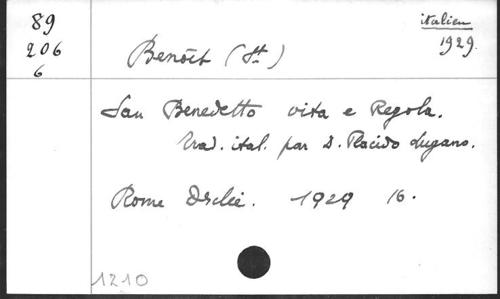 89
206
6
italien
1929.
Benoît (St)
San Benedetto vita e Regola.
Trad. ital. par D. Placido Lugano.
Rome Desclée. 1929 16.
1210